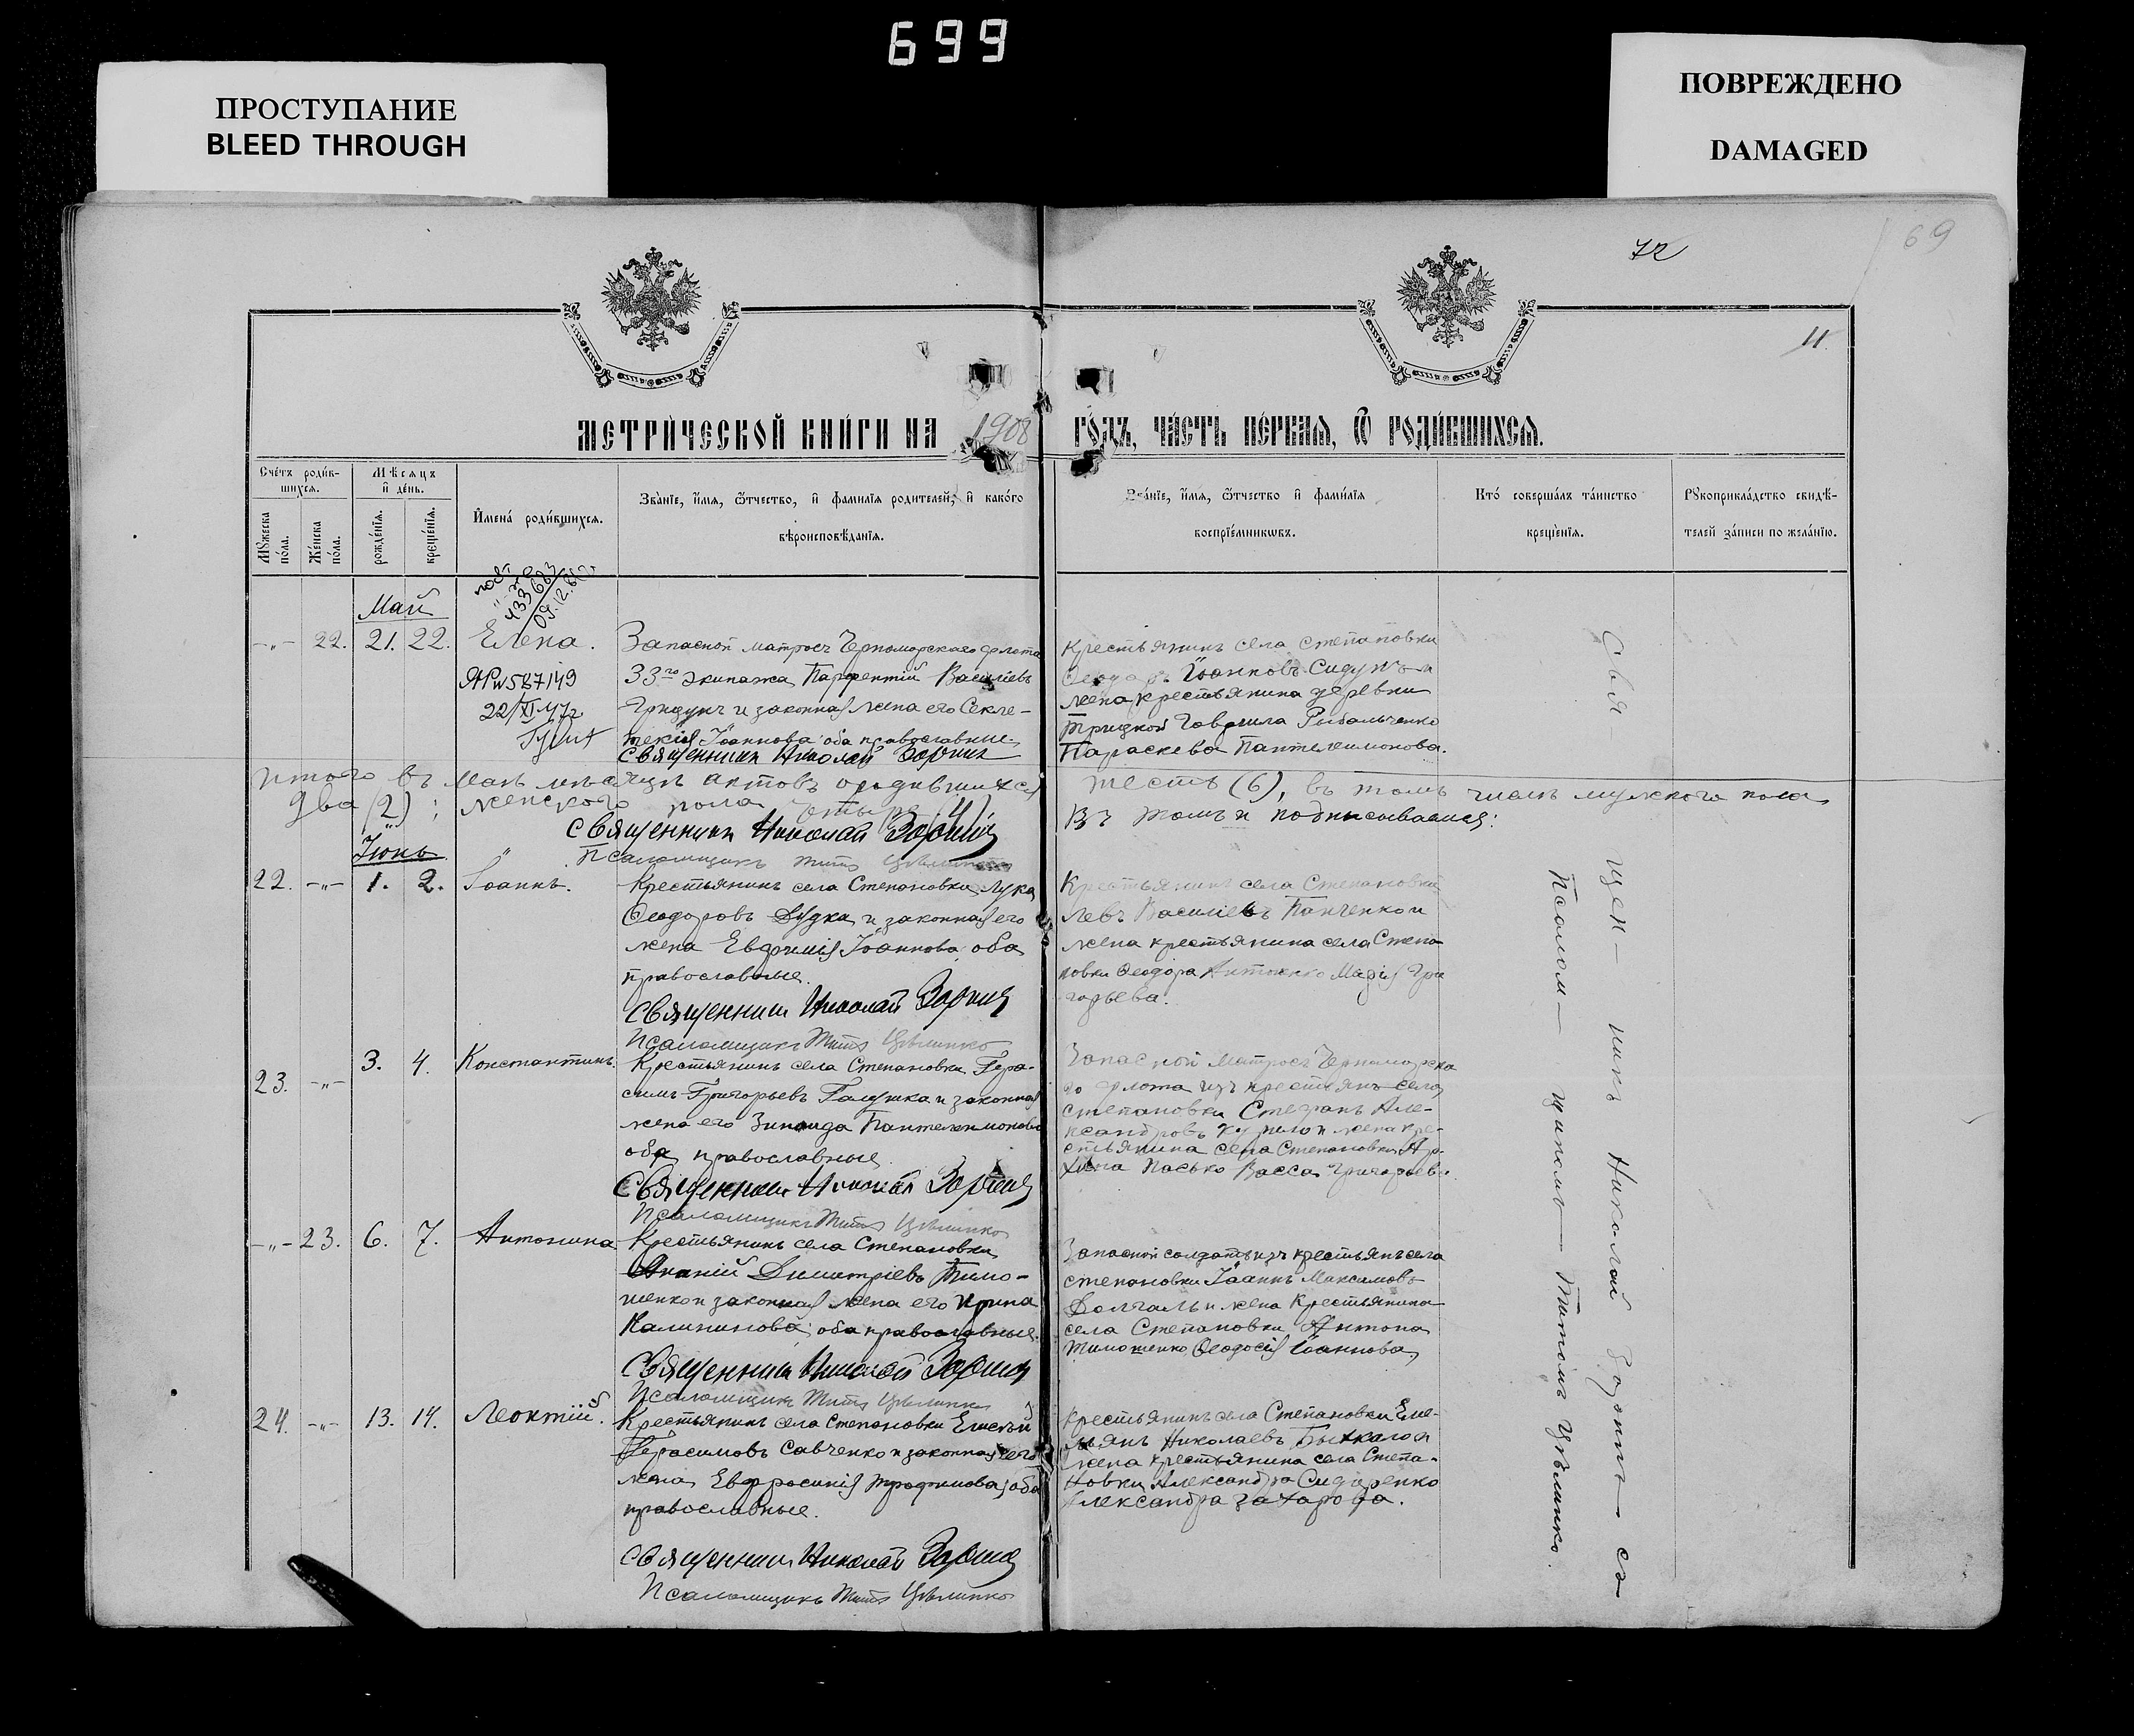 699
ПРОСТУПАНИЕ
BLEED THROUGH
ПОВРЕЖДЕНО
DAMAGED
72
69
11
МЕТРИ́ЧЕСКОЙ КНИ́ГИ НА 1908 ГО́ДЪ, ЧА́СТЬ ПЕ́РВАЯ, Ѿ РОДИ́ВШИХСЯ.
Счетъ роди́вшихся.
Мѣсяцъ и де́нь.
Му́жеска по́ла.
Же́нска по́ла.
рожде́нія.
креще́нія.
Имена́ роди́вшихся.
Зва́ніе, и́мя, ѻ́тчество, и фами́лія родителей, и како́го
вѣроисповѣ́данія.
Зва́ніе, и́мя, ѻ́тчество и фами́лія
воспріе́мниковъ.
Кто́ соверша́лъ та́инство
креще́нія.
Рукоприкла́дство свидѣ́-
телей за́писи по жела́нію.
Май
-„- 22. 21. 22. Елена.
433683
09.12.
587149
22/XI
Запасной матросъ Черноморскаго флота
33го экипажа Парфентій Василіевъ
и законная жена его Секле-
Іоаннова оба православные.
Священникъ Николай Зоринъ
Крестьянинъ села Степановки
Іоанновъ Сидунъ и
жена крестьянина деревни
Троицкой Гавріила Рыбальченко
Параскева Пантелеимонова.
Итого въ Маѣ мѣсяцѣ актовъ о родившихся шесть (6), въ томъ числѣ мужского пола
два (2); женского пола четыре (4) Въ томъ и подписываемся:
Священникъ Николай Зоринъ
Псаломщикъ Титъ Цѣлинко
Іюнь
22. -„- 1. 2. Іоаннъ.
Крестьянинъ села Степановки Лука
Ѳеодоровъ Дудка и законная его
жена Евфимія Іоаннова, оба
православные.
Священникъ Николай Зоринъ
Псаломщикъ Титъ Цѣлинко
Крестьянинъ села Степановки
Левъ Василіевъ Панченко и
жена крестьянина села Степа-
новки Ѳеодора Антоненко Марія Гри-
горьева.
23. -„- 3. 4. Константинъ.
Крестьянинъ села Степановки Гера-
симъ Григорьевъ Галушка и законная
жена его Зинаида Пантелеимонова
оба православные
Священникъ Николай Зоринъ
Псаломщикъ Титъ Цѣлинко
Запасной матросъ Черноморска-
го флота изъ крестьянъ села
Степановки Стефанъ Але-
ксандровъ и жена кре-
стьянина села Степановки
Пасько Васса Григорьева.
-„- 23. 6. 7. Антонина
Крестьянинъ села Степановки
Ананій Димитріевъ Тимо-
шенко и законная жена его Ирина
Калиникова; оба православные.
Священникъ Николай Зоринъ
Псаломщикъ Титъ Цѣлинко
Запасной солдатъ изъ крестьянъ села
Степановки Іоаннъ Максимовъ
Долгаль и жена крестьянина
села Степановки Антона
Тимошенко Ѳеодосія Іоаннова
24. -„- 13. 14. Леонтій.
Крестьянинъ села Степановки Елисей
Герасимовъ Савченко и законная его
жена Евфросинія Трофимова; оба
православные.
Священникъ Николай Зоринъ
Псаломщикъ Титъ Цѣлинко
Крестьянинъ села Степановки Еме-
льянъ Николаевъ и
жена крестьянина села Степа-
новки Александра Сидоренко
Александра Захарова.
Свя щен- никъ Николай Зоринъ съ
Псалом- щикомъ Титомъ Цѣлинко.